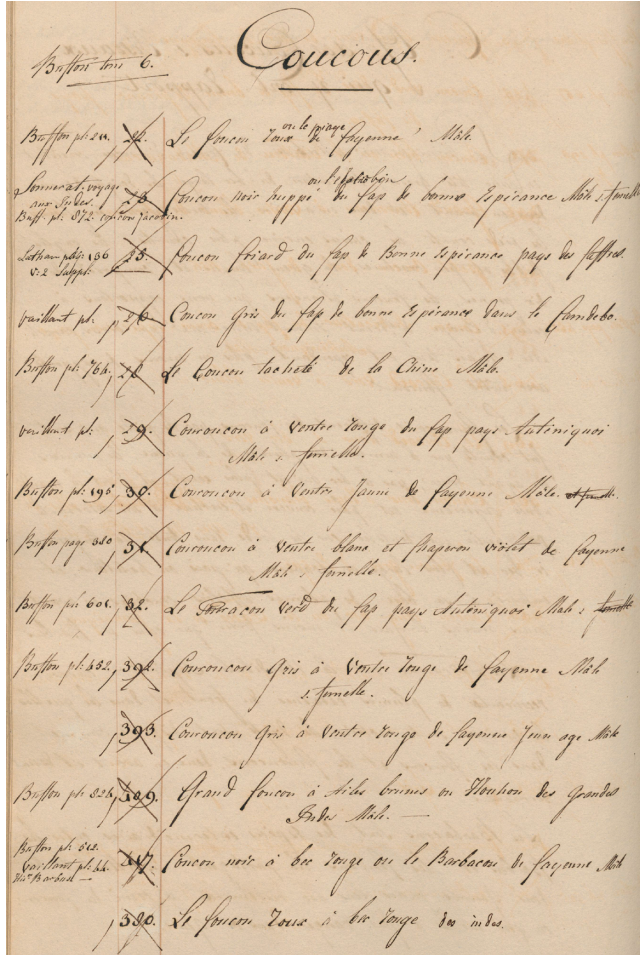 Coucous.
Buffon tom 6.
Buffon pl: 211. 22. Le Coucou roux ou le piaye de Cayenne Mâle.
Sonnerat. voyage aux Indes.
Buff. pl. 872. coucou jacobin.
Coucou noir huppé ou le Jacobin du Cap de bonne Espérance Mâle & femelle
Latham 136
v: 2 Suppl:
25. Coucou criard du Cap de Bonne Espérance pays des Caffres.
vaillant pl: 26. Coucou Gris du Cap de bonne Espérance dans le Camdebo.
Buffon pl: 764. 28. Le Coucou tacheté de la Chine Mâle.
vaillant pl: 29. Couroucou à Ventre rouge du Cap pays Auténiquoi
Mâle & femelle.
Buffon pl: 195. 30. Couroucou à Ventre Jaune de Cayenne Mâle. et femelle.
Buffon page 380 31. Couroucou à Ventre blanc et Chaperon violet de Cayenne
Mâle & femelle.
Buffon pl: 601. 32. Le Touracou Verd du Cap pays Auténiquoi Mâle & femelle
Buffon pl: 452. 392. Couroucou Gris à Ventre rouge de Cayenne Mâle
& femelle.
393. Couroucou Gris à Ventre rouge de Cayenne Jeune age Mâle
Buffon pl: 824. Grand Coucou à Ailes brunes ou Houhou des Grandes
Indes Mâle.
Buffon pl: 512.
Vaillant pl: 44.
Barbus
417. Coucou noir à bec rouge ou le Barbacou de Cayenne Mâle
380. Le Coucou Roux à bec rouge des indes.